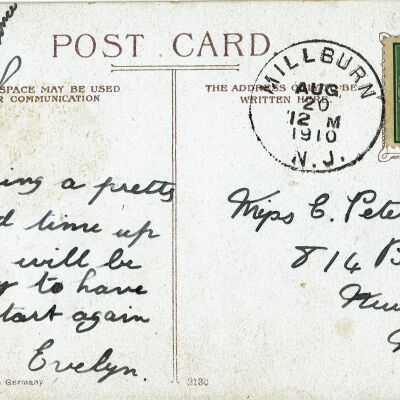 POST CARD.
SPACE MAY BE USED
R COMMUNICATION
THE ADDRESS ONLY TO BE
WRITTEN HERE
MILLBURN
AUG
20
12 M
1910
N. J.
ing a pretty
d time up
will be
y to have
start again
Evelyn.
Miss C. Pete
814 B
New
Germany
2130